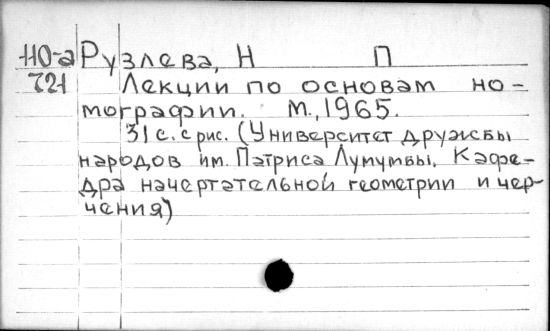 110-а Рузлева, Н П
721 Лекции по основам но-
мографии. М., 1965.
31 с. с рис. (Университет дружбы
народов им. Патриса Лумумбы. Кафе-
дра начертательной геометрии и чер-
чения)